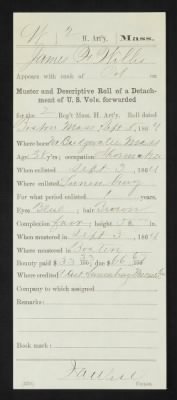 W 2 H. Art'y. Mass.
James W Willis
Appears with rank of
Muster and Descriptive Roll of a Detach-
ment of U. S. Vols. forwarded
for the 2 Reg't Mass. H. Art'y. Roll dated
Boston Mass Sept 8, 1864
Where born Bridgewater Mass
Age y'rs; occupation Shoemaker
When enlisted Sept 3, 1864
Where enlisted
For what period enlisted 1 years.
Eyes Blue; hair Brown
Complexion; height ft. in.
When mustered in Sept 3, 1864
Where mustered in Boston
Bounty paid $ 33; due $ 66
Where credited
Company to which assigned
Remarks:
Book mark:
Copyist.